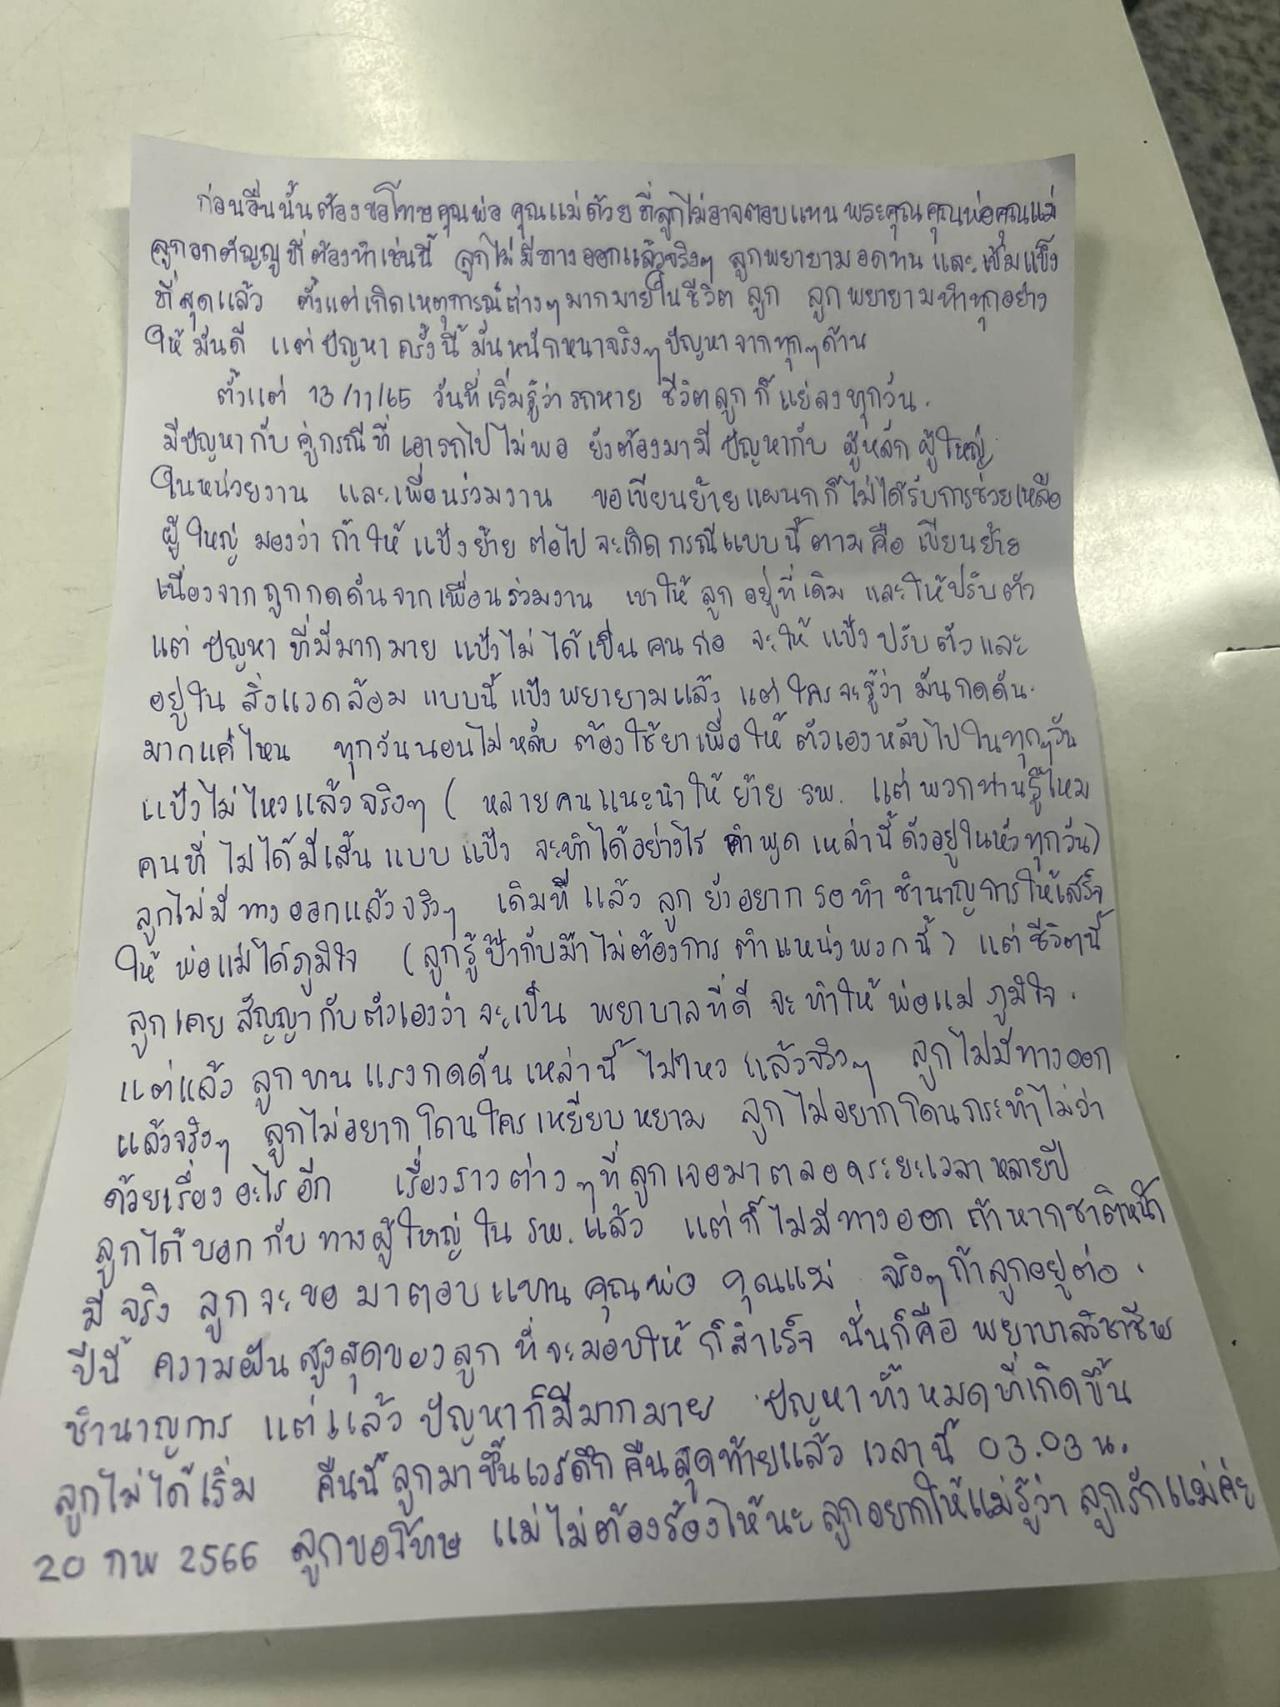 ก่อนอื่นนั้นต้องขอโทษคุณพ่อ คุณแม่ด้วย ที่ลูกไม่อาจตอบแทน พระคุณคุณพ่อคุณแม่
ลูกอกตัญญู ที่ต้องทำเช่นนี้ ลูกไม่มีทางออกแล้วจริงๆ ลูกพยายามอดทน และเข้มแข็ง
ที่สุดแล้ว ตั้งแต่เกิดเหตุการณ์ต่างๆมากมายในชีวิต ลูก ลูกพยายามทำทุกอย่าง
ให้ มันดี แต่ปัญหา ครั้งนี้ มันหนักหนาจริงๆ ปัญหาจากทุกๆด้าน
ตั้งแต่ 13/11/65 วันที่เริ่มรู้ว่ารถหาย ชีวิตลูกก็แย่ลงทุกวัน.
มีปัญหากับ คู่กรณีที่ เอารถไปไม่พอ ยังต้องมามี ปัญหากับ ผู้หลัก ผู้ใหญ่
ในหน่วยงาน และเพื่อนร่วมงาน ขอเขียนย้ายแผนกก็ไม่ได้รับการช่วยเหลือ
ผู้ใหญ่ มองว่า ถ้าให้ แป้งย้าย ต่อไป จะเกิดกรณีแบบนี้ ตามคือ เขียนย้าย
เนื่องจากถูกกดดันจากเพื่อนร่วมงาน เขาให้ ลูก อยู่ที่เดิม และให้ปรับตัว
แต่ ปัญหา ที่มีมากมาย แป้งไม่ ได้เป็น คนก่อ จะให้ แป้งปรับตัวและ
อยู่ใน สิ่งแวดล้อม แบบนี้ แป้งพยายามแล้ว แต่ ใครจะรู้ว่า มันกดดัน.
มากแค่ไหน ทุกวันนอนไม่หลับ ต้องใช้ยาเพื่อให้ ตัวเองหลับไปในทุกๆวัน
แป้งไม่ไหวแล้วจริงๆ ( หลายคนแนะนำให้ ย้าย รพ. แต่พวกท่านรู้ไหม
คนที่ ไม่ได้มีเส้น แบบแป้ง จะทำได้อย่างไร คำพูด เหล่านี้ ดังอยู่ในหัวทุกวัน)
ลูกไม่มี ทางออกแล้วจริงๆ เดิมที แล้ว ลูก ยังอยาก รอ ทำ ชำนาญการให้เสร็จ
ให้ พ่อแม่ได้ภูมิใจ (ลูกรู้ป๊ากับม๊าไม่ต้องการ ตำแหน่งพวกนี้) แต่ ชีวิตนี้
ลูกเคย สัญญากับตัวเองว่า จะเป็น พยาบาลที่ดี จะทำให้ พ่อแม่ ภูมิใจ.
แต่แล้ว ลูกทนแรงกดดันเหล่านี้ ไม่ไหว แล้วจริงๆ ลูกไม่มีทางออก
แล้วจริงๆ ลูกไม่อยากโดนใครเหยียบหยาม ลูกไม่อยากโดนกระทำไม่ว่า
ด้วยเรื่องอะไรอีก เรื่องราวต่างๆที่ลูกเจอมาตลอดระยะเวลาหลายปี
ลูกได้บอกกับทางผู้ใหญ่ใน รพ. แล้ว แต่ก็ไม่มีทางออก ถ้าหากชาติหน้า
มี จริง ลูกจะขอ มาตอบแทนคุณพ่อ คุณแม่ จริงๆถ้าลูกอยู่ต่อ.
ปีนี้ ความฝัน สูงสุดของลูก ที่จะมอบให้ ก็สำเร็จ นั่นก็คือ พยาบาลวิชาชีพ
ชำนาญการ แต่แล้ว ปัญหาก็มีมากมาย ปัญหาทั้งหมดที่เกิดขึ้น
ลูกไม่ได้เริ่ม คืนนี้ลูกมาขึ้นเวรดึกคืนสุดท้ายแล้ว เวลานี้ 03.03 น.
20 กพ 2566 ลูกขอโทษ แม่ไม่ต้องร้องไห้นะ ลูกอยากให้แม่รู้ว่า ลูกรักแม่ค่ะ